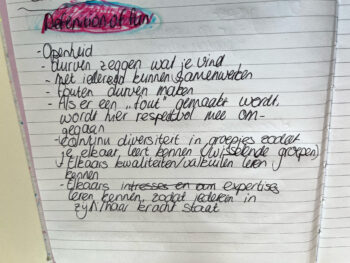 Defenition of fun
- Openheid
- durven zeggen wat je vind
- met iedereen kunnen samenwerken
- fouten durven maken
- Als er een "fout" gemaakt wordt,
wordt hier respectvol mee om-
gegaan
- continu diversiteit in groepjes zodat
je elkaar leert kennen (wisselende groepen)
- Elkaars kwaliteiten/valkuilen leren
kennen
- Elkaars intresses en expertises
leren kennen, zodat iedereen in
zijn/haar kracht staat